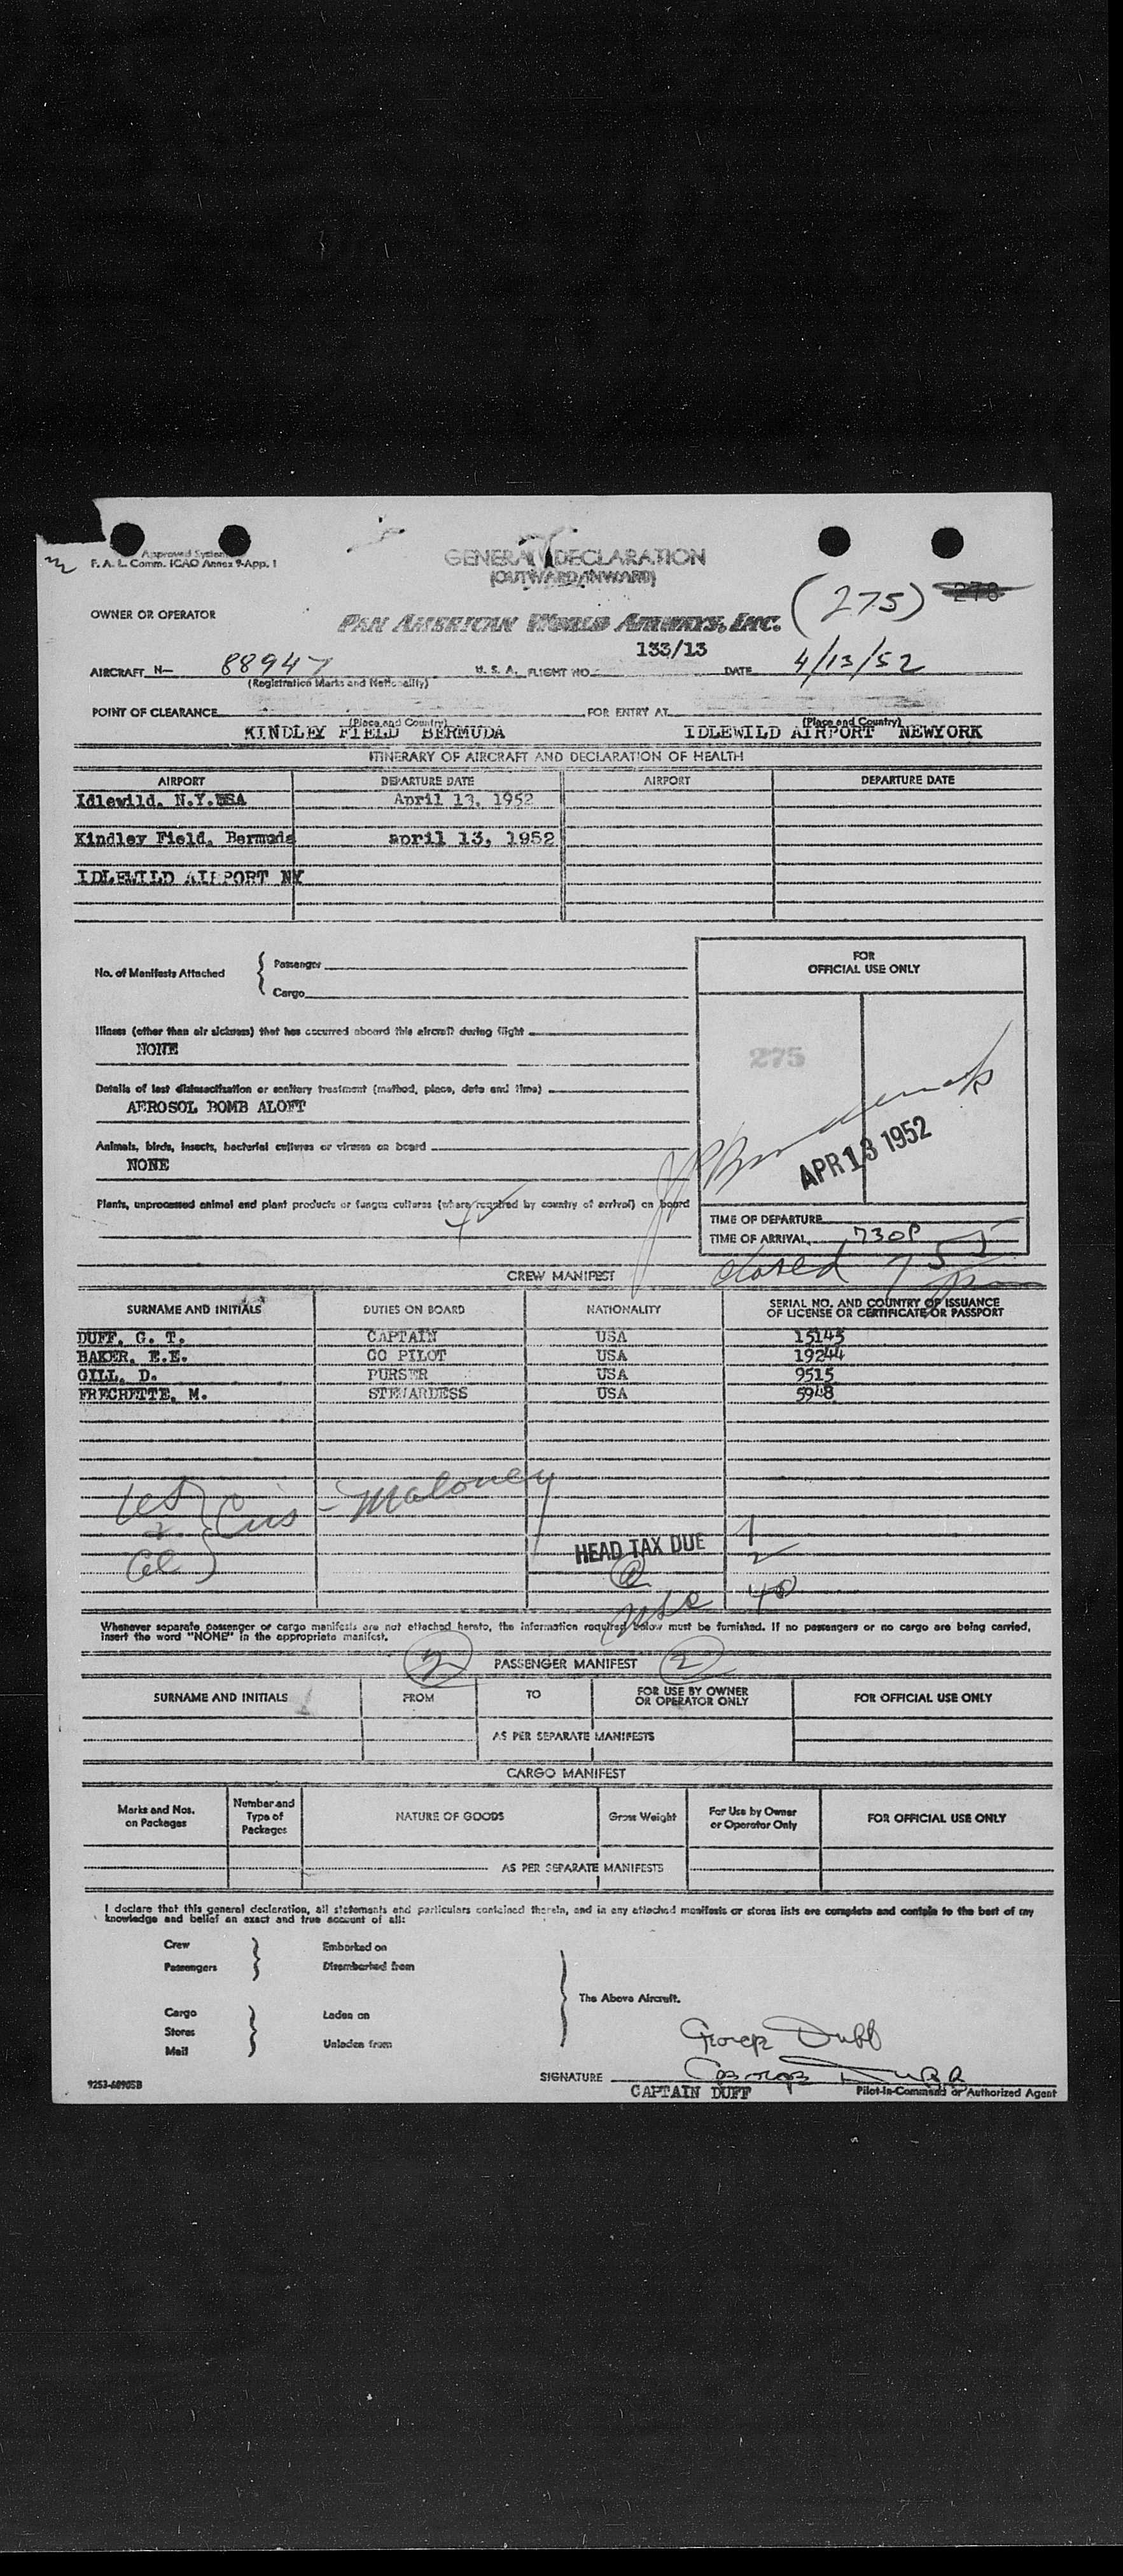 Approved System
F. A. L. Comm. ICAO Annex 9-App. 1
GENERAL DECLARATION
(OUTWARD/INWARD)
(275) 276
OWNER OR OPERATOR
PAN AMERICAN WORLD AIRWAYS, INC.
133/13
AIRCRAFT N— 88947 U. S. A. FLIGHT NO. DATE 4/13/52
(Registration Marks and Nationality)
POINT OF CLEARANCE FOR ENTRY AT
(Place and Country) (Place and Country)
KINDLEY FIELD BERMUDA IDLEWILD AIRPORT NEWYORK
ITINERARY OF AIRCRAFT AND DECLARATION OF HEALTH
AIRPORT DEPARTURE DATE AIRPORT DEPARTURE DATE
Idlewild, N.Y. USA April 13, 1952
Kindley Field, Bermuda april 13, 1952
IDLEWILD AIRPORT NY
No. of Manifests Attached { Passenger
Cargo
FOR
OFFICIAL USE ONLY
Illness (other than air sickness) that has occurred aboard this aircraft during flight
NONE
275
Details of last disinsectization or sanitary treatment (method, place, date and time)
AEROSOL BOMB ALOFT
APR 13 1952
Animals, birds, insects, bacterial cultures or viruses on board
NONE
Plants, unprocessed animal and plant products or fungus cultures (where required by country of arrival) on board
TIME OF DEPARTURE
TIME OF ARRIVAL 730P
closed 755
CREW MANIFEST
SURNAME AND INITIALS DUTIES ON BOARD NATIONALITY SERIAL NO. AND COUNTRY OF ISSUANCE
OF LICENSE OR CERTIFICATE OR PASSPORT
DUFF, G. T. CAPTAIN USA 15145
BAKER, E.E. CO PILOT USA 19244
GILL, D. PURSER USA 9515
FRECHETTE, M. STEWARDESS USA 5948
Cus - Maloney
HEAD TAX DUE
Whenever separate passenger or cargo manifests are not attached hereto, the information required below must be furnished. If no passengers or no cargo are being carried,
insert the word "NONE" in the appropriate manifest.
2 PASSENGER MANIFEST 2
SURNAME AND INITIALS FROM TO FOR USE BY OWNER
OR OPERATOR ONLY FOR OFFICIAL USE ONLY
AS PER SEPARATE MANIFESTS
CARGO MANIFEST
Marks and Nos.
on Packages Number and
Type of
Packages NATURE OF GOODS Gross Weight For Use by Owner
or Operator Only FOR OFFICIAL USE ONLY
AS PER SEPARATE MANIFESTS
I declare that this general declaration, all statements and particulars contained therein, and in any attached manifests or stores lists are complete and contain to the best of my
knowledge and belief an exact and true account of all:
Crew Embarked on
Passengers Disembarked from
The Above Aircraft.
Cargo Laden on
Stores
Mail Unladen from
George Duff
SIGNATURE George Duff
CAPTAIN DUFF Pilot-in-Command or Authorized Agent
9253-60905B